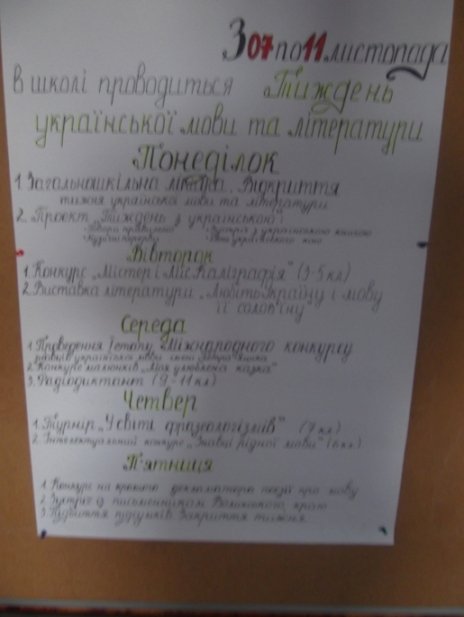 З 07 по 11 листопада
в школі проводиться Тиждень
української мови та літератури
Понеділок
1. Загальношкільна лінійка. Відкриття
тижня української мови та літератури
2. Проект „Тиждень з українською":
Вівторок
1. Конкурс „Містер і Міс Каліграфія" (3-5 кл)
2. Виставка літератури „Любіть Україну і мову
її солов'їну"
Середа
1. Проведення І етапу Міжнародного конкурсу
знавців української мови імені Петра Яцика
2. Конкурс малюнків „Моя улюблена казка"
3. Радіодиктант (9-11 кл)
Четвер
1. Турнір „У світі фразеологізмів" (7 кл)
2. Інтелектуальний конкурс „Знавці рідної мови" (6 кл).
П'ятниця
1. Конкурс на кращого декламатора поезії про мову
2. Зустріч з письменником краю
3. Підбиття підсумків. Закриття тижня